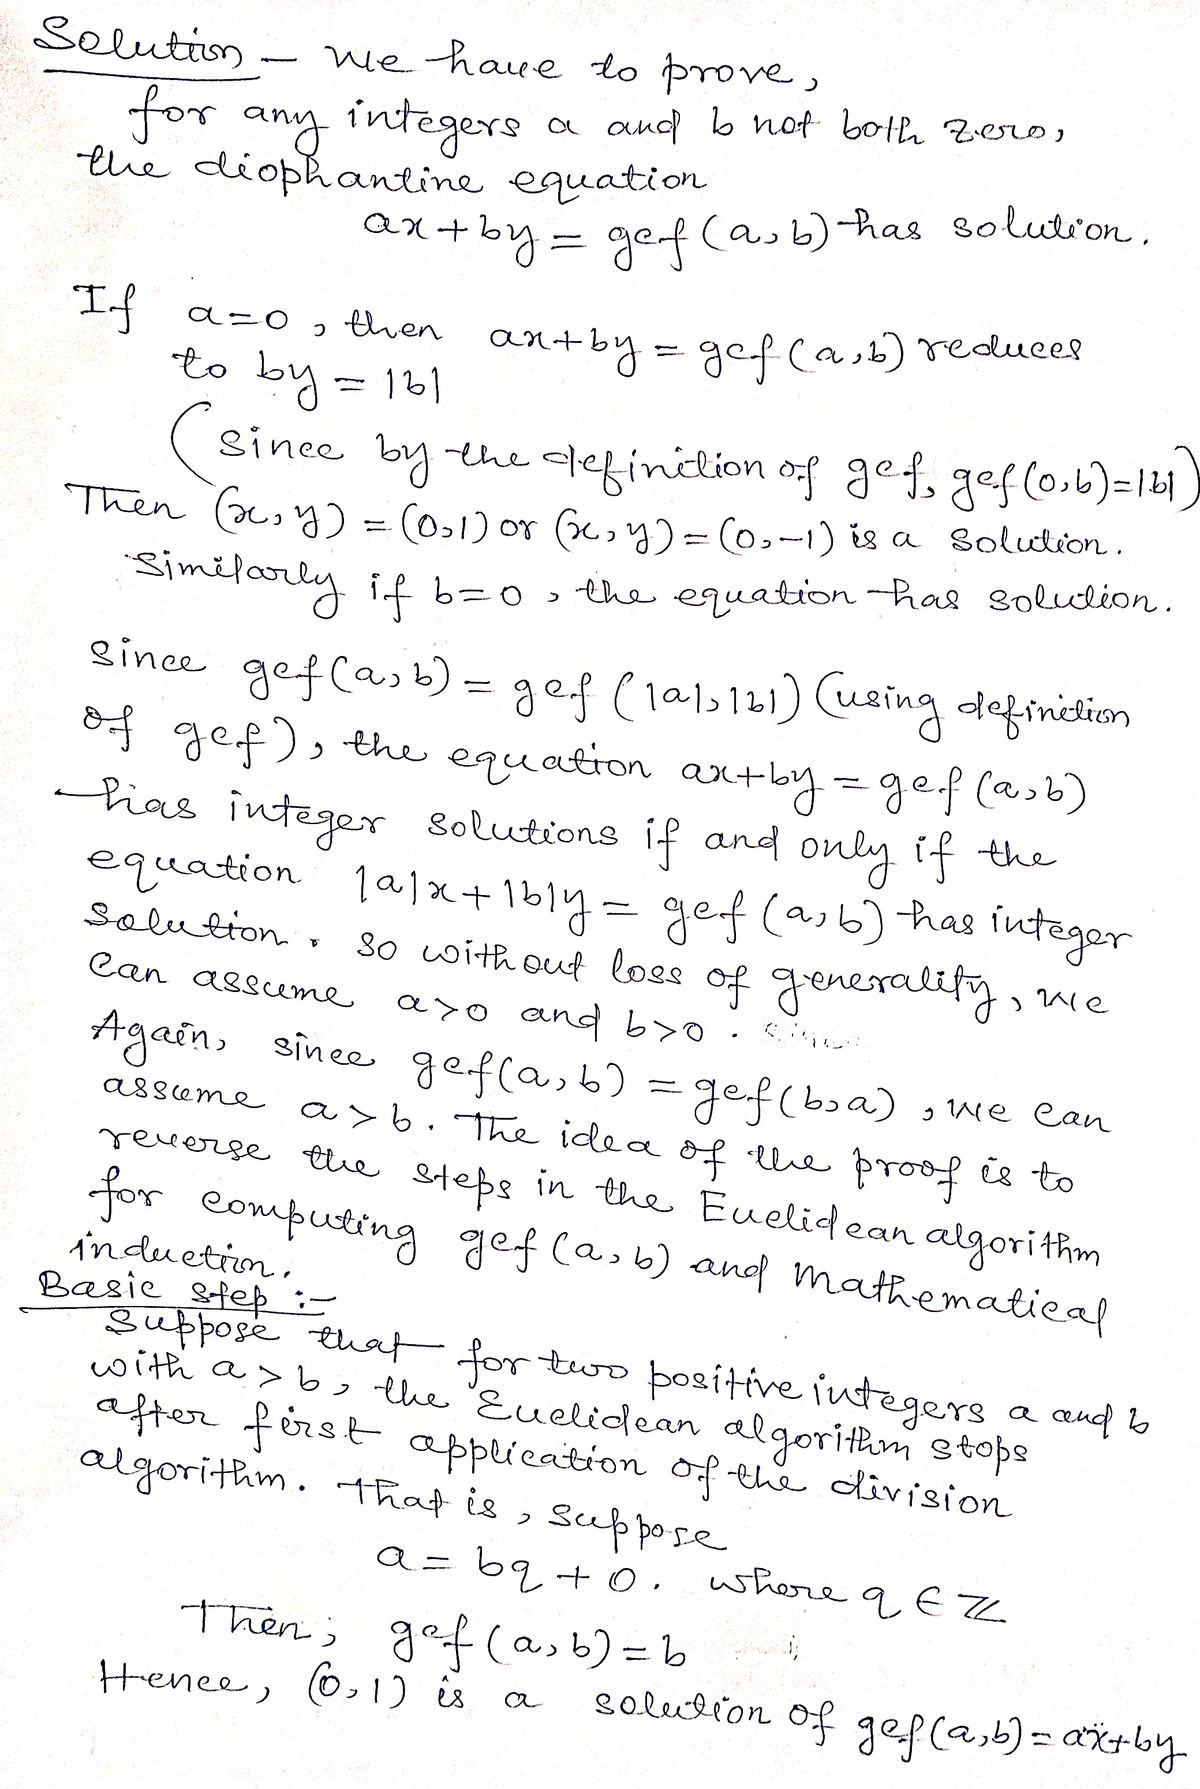 Solution - We have to prove,
for any integers a and b not both zero,
the diophantine equation
ax+by = gcf(a,b) has solution.
If a=0, then ax+by = gcf(a,b) reduces
to by = |b|
(since by the definition of gcf, gcf(0,b)=|b|)
Then (x,y) = (0,1) or (x,y) = (0,-1) is a solution.
Similarly if b=0, the equation has solution.
Since gcf(a,b) = gcf(|a|,|b|) (using definition
of gcf), the equation ax+by = gcf(a,b)
has integer solutions if and only if the
equation |a|x+|b|y = gcf(a,b) has integer
solution. So without loss of generality, we
can assume a>0 and b>0.
Again, since gcf(a,b) = gcf(b,a), we can
assume a>b. The idea of the proof is to
reverse the steps in the Euclidean algorithm
for computing gcf(a,b) and Mathematical
induction.
Basic step :-
Suppose that for two positive integers a and b
with a>b, the Euclidean algorithm stops
after first application of the division
algorithm. That is, suppose
a = bq + 0. where q ∈ ℤ
Then, gcf(a,b) = b
Hence, (0,1) is a solution of gcf(a,b) = ax+by